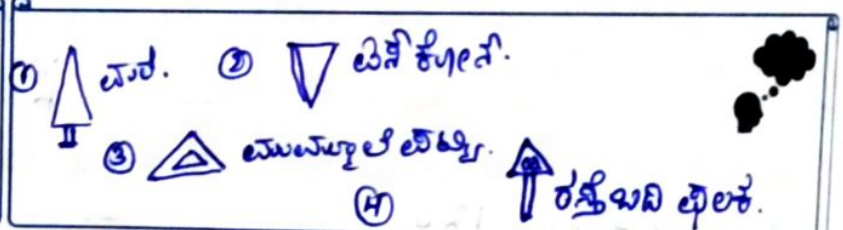 ① ಮರ. ② ಐಸ್ ಕೋನ್.
③ ಮುಮ್ಮೂಲೆ ಪಟ್ಟಿ.
④ ರಸ್ತೆ ಬದಿ ಫಲಕ.